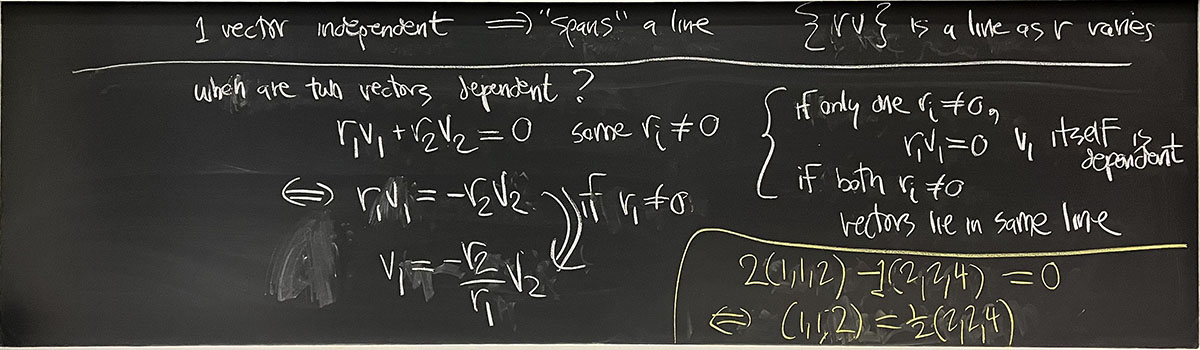 1 vector independent ⟹ "spans" a line {rv} is a line as r varies
when are two vectors dependent?
r₁v₁ + r₂v₂ = 0 some rᵢ ≠ 0
⟺ r₁v₁ = -r₂v₂ if r₁ ≠ 0
v₁ = -r₂/r₁ v₂
{ if only one rᵢ ≠ 0,
r₁v₁ = 0 v₁ itself is dependent
if both rᵢ ≠ 0
vectors lie in same line
2(1,1,2) - 1(2,2,4) = 0
⟺ (1,1,2) = ½(2,2,4)